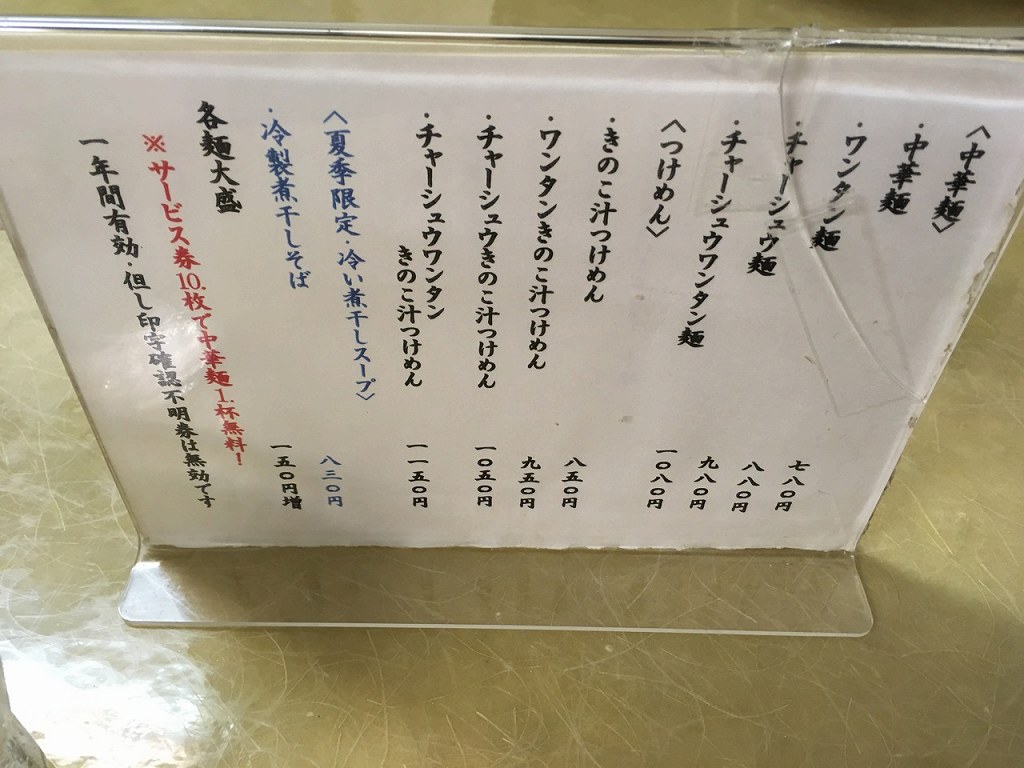 〈中華麺〉
・中華麺 七八〇円
・ワンタン麺 八八〇円
・チャーシュウ麺 九八〇円
・チャーシュウワンタン麺 一〇八〇円
〈つけめん〉
・きのこ汁つけめん 八五〇円
・ワンタンきのこ汁つけめん 九五〇円
・チャーシュウきのこ汁つけめん 一〇五〇円
・チャーシュウワンタン
きのこ汁つけめん 一一五〇円
〈夏季限定・冷い煮干しスープ〉
・冷製煮干しそば 八三〇円
各麺大盛 一五〇円増
※サービス券10.枚で中華麺1.杯無料!
一年間有効・但し印字確認不明券は無効です